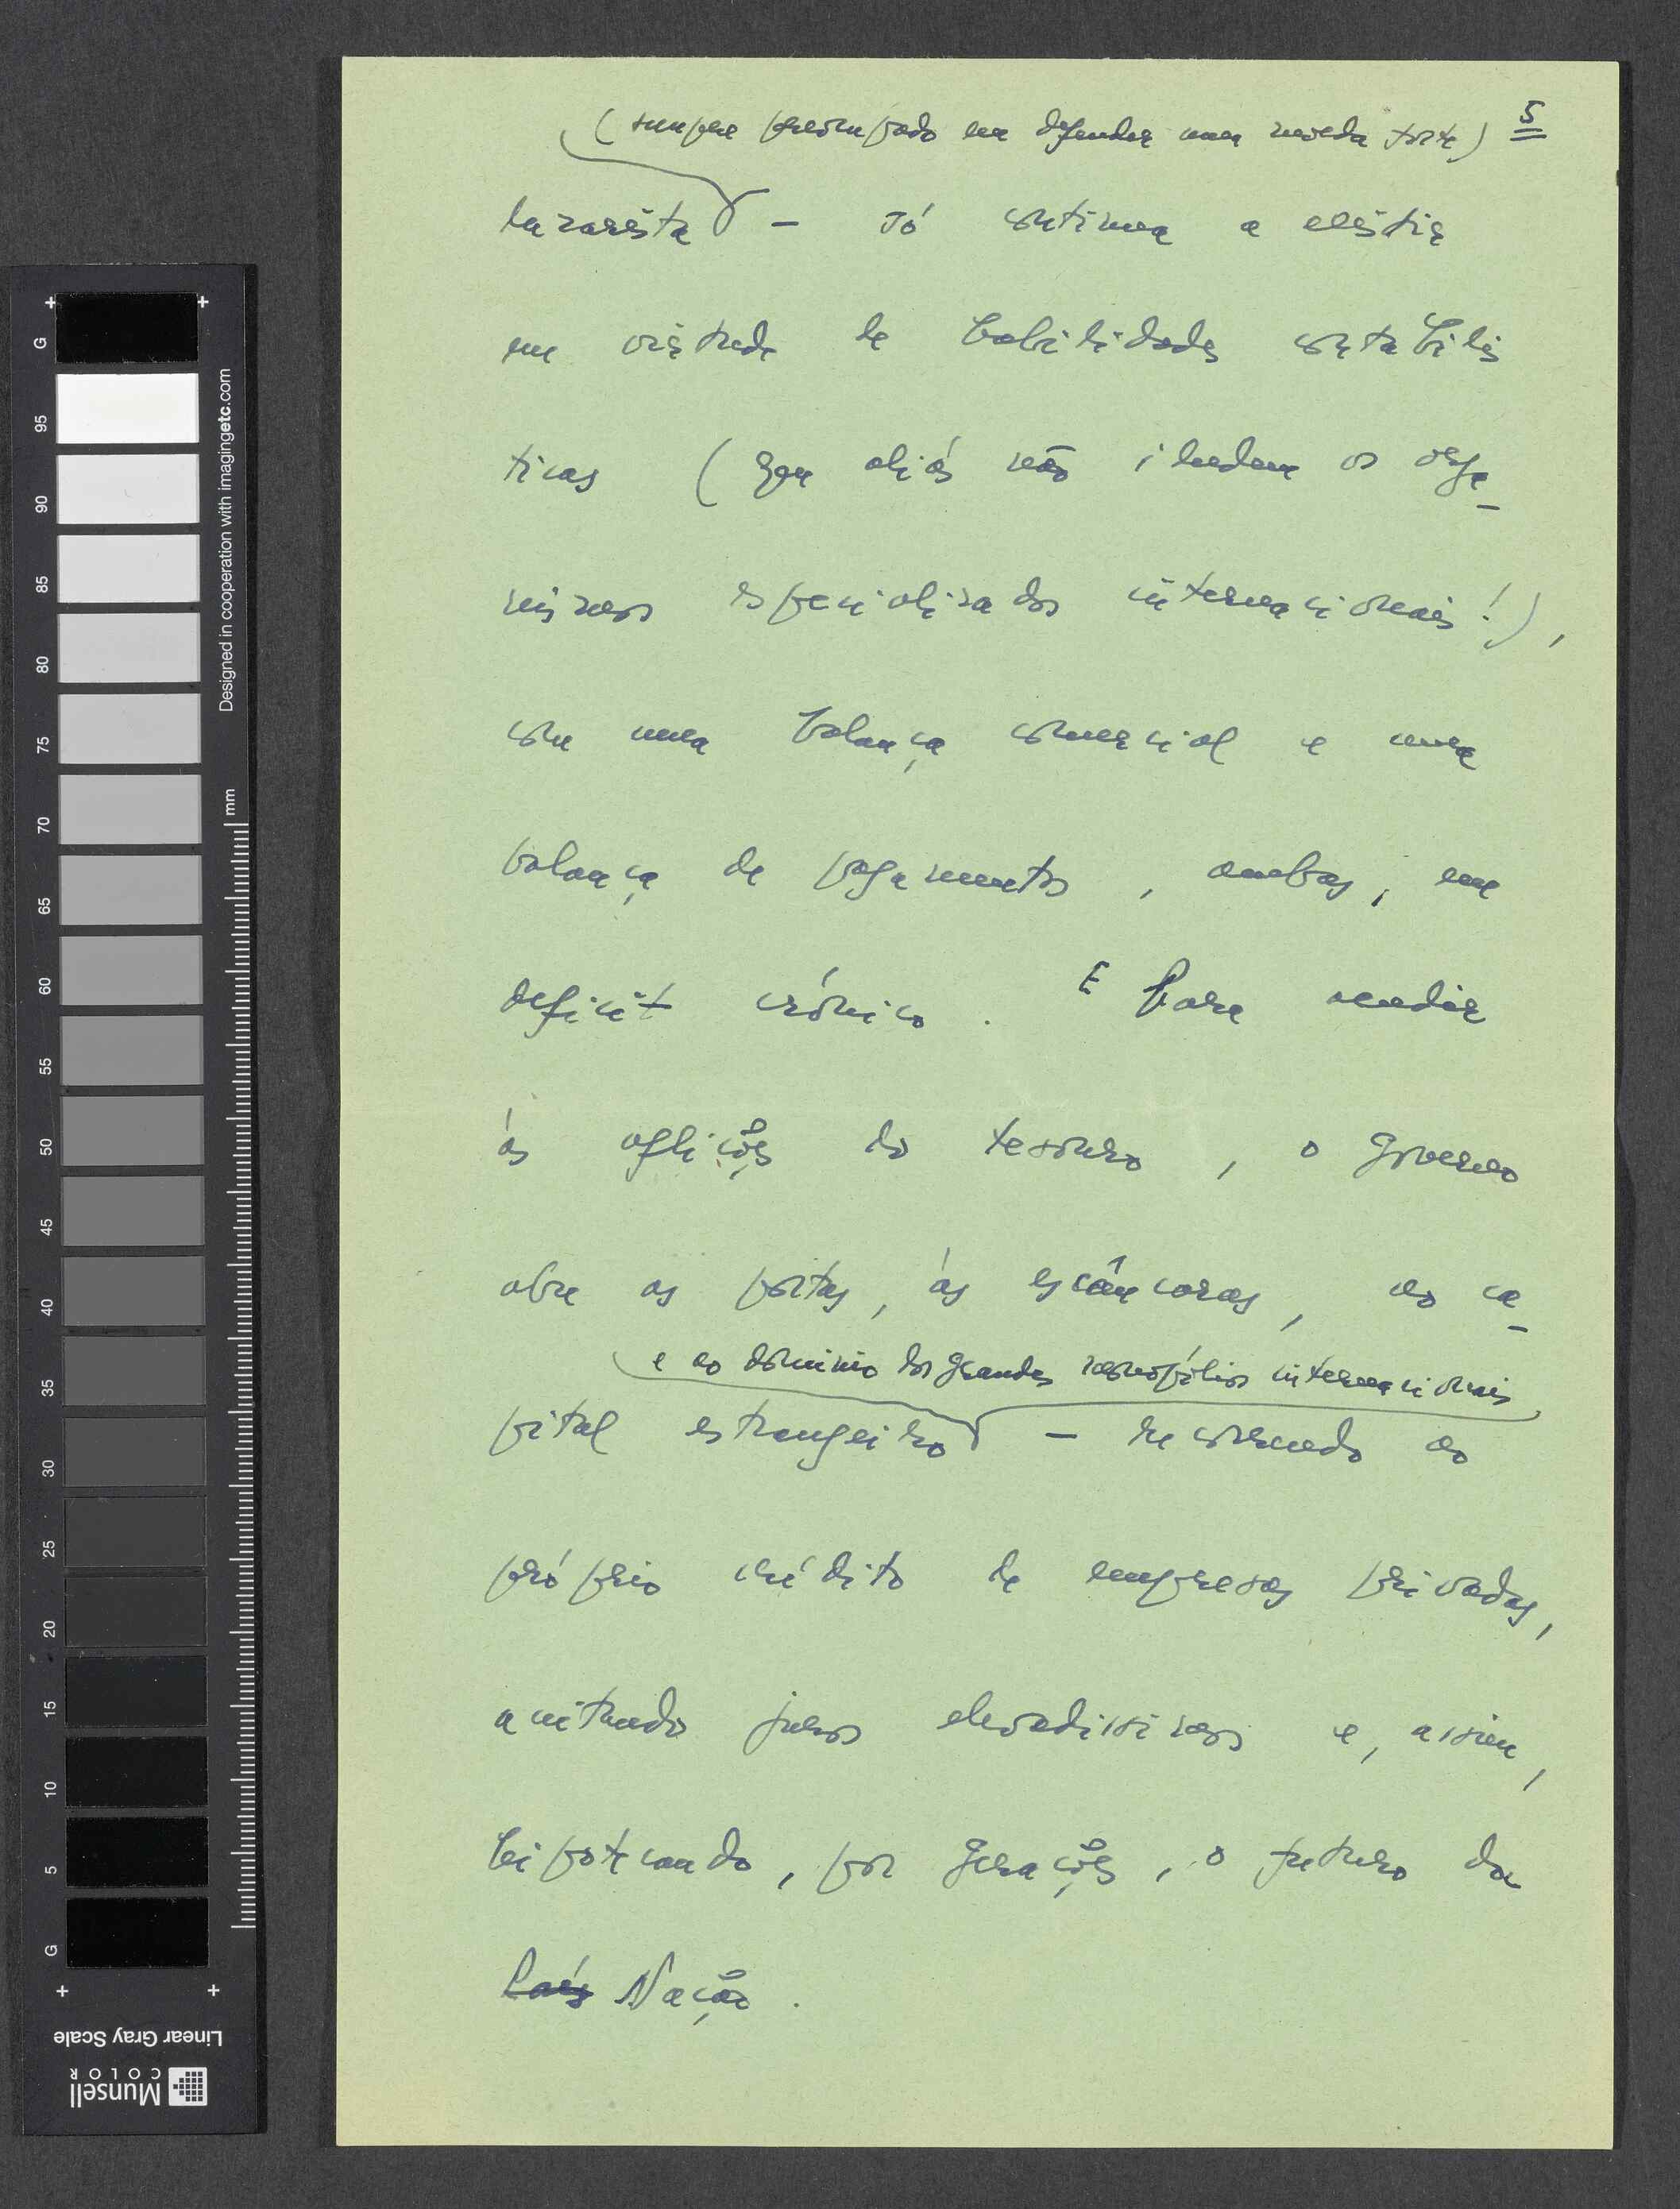 5
(sempre preocupado em defender uma moeda forte)
lazarista – só continua a existir
em virtude de habilidades contabilís
ticas (que aliás não iludem os orga-
nismos especializados internacionais!),
com uma balança comercial e uma
balança de pagamentos, ambas, em
deficit crónico. E para acudir
ás aflições do tesouro, o Governo
abre as portas, ás escâncaras, ao ca-
e ao dominio dos grandes monopólios internacionais
pital estrangeiro – recorrendo ao
próprio crédito de empresas privadas,
aceitando juros elevadissimos e, assim,
hipotecando, por gerações, o futuro da
País Nação.
G
95
90
85
80
75
70
65
60
55
50
45
40
35
30
25
20
15
10
5
G
mm
Designed in cooperation with imagingetc.com
Linear Gray Scale
Munsell
COLOR